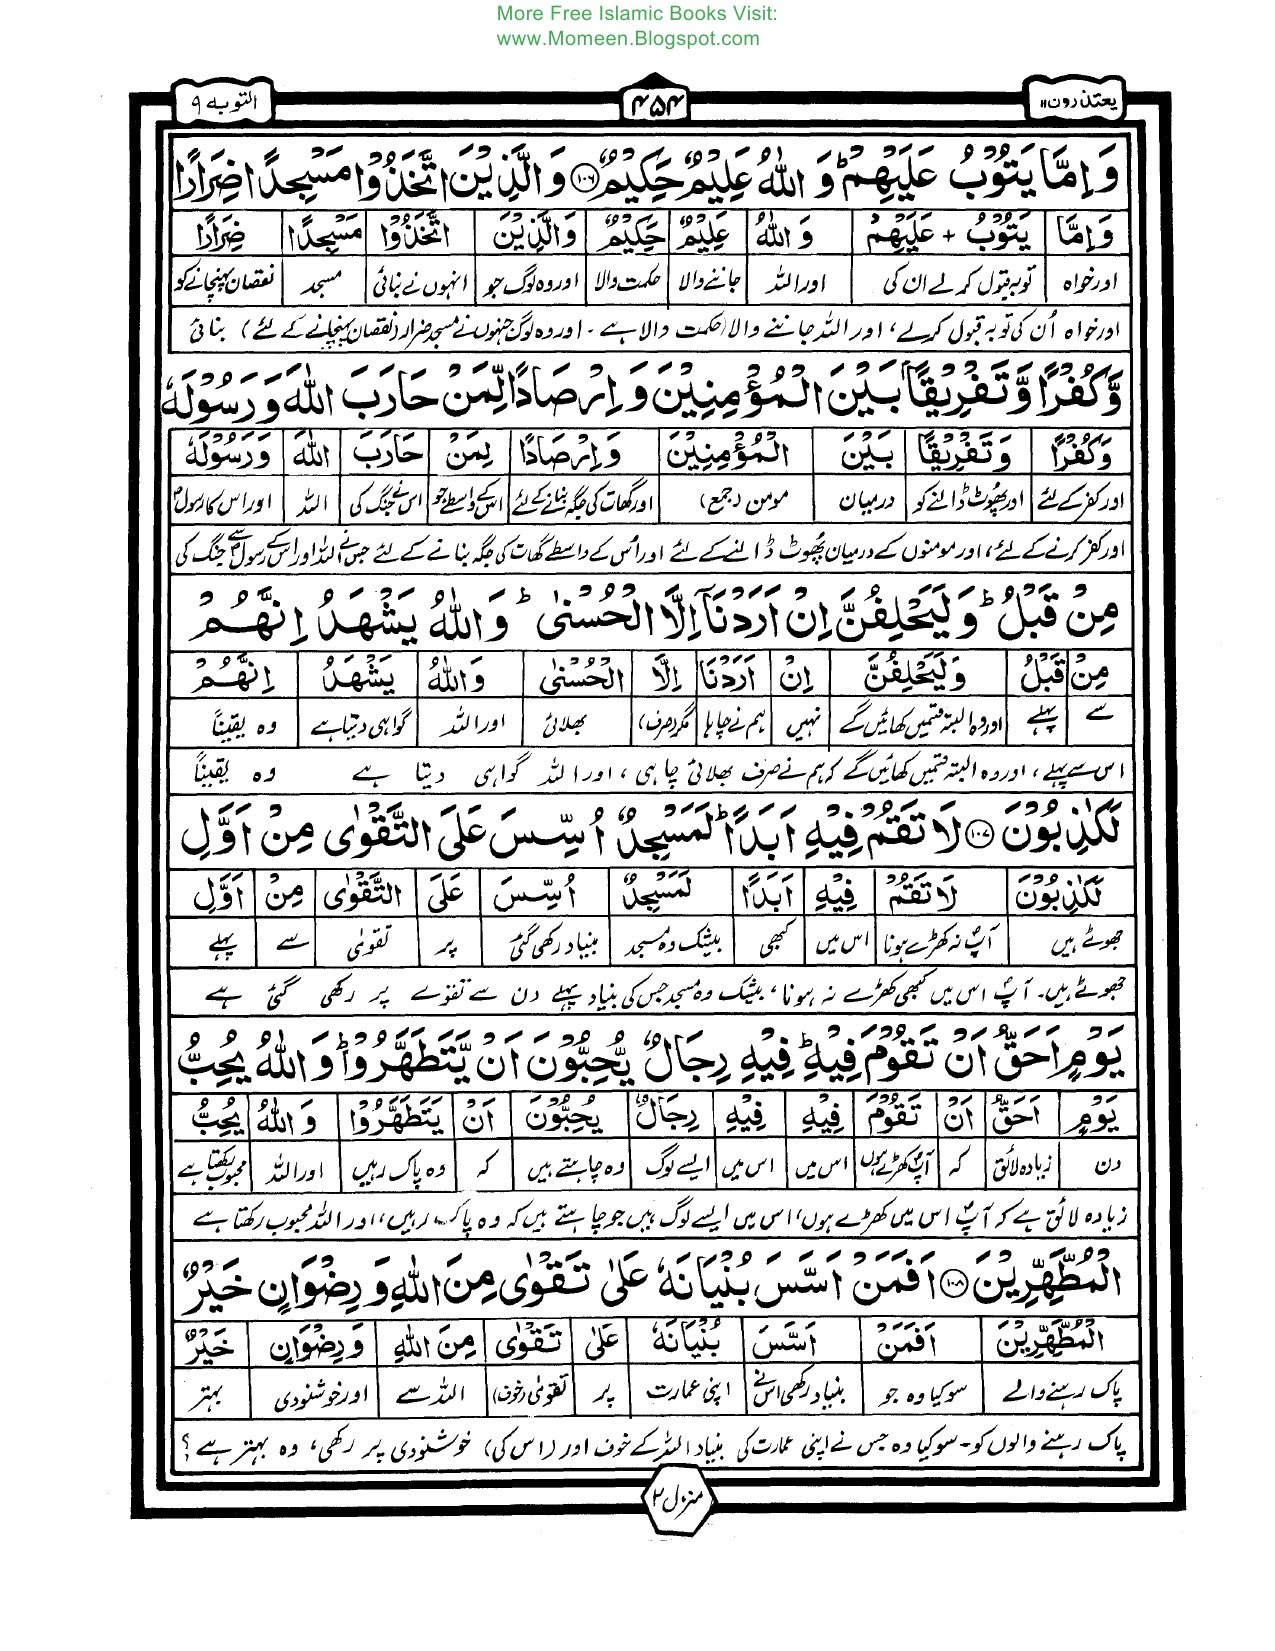 More Free Islamic Books Visit:
www.Momeen.Blogspot.com
یعتذرون ۱۱ ۴۵۴ التوبه ۹
وَاِمَّا يَتُوْبُ عَلَيْهِمْ ؕ وَ اللّٰهُ عَلِيْمٌ حَكِيْمٌ ۝۱۰۶ وَ الَّذِيْنَ اتَّخَذُوْا مَسْجِدًا ضِرَارًا
وَاِمَّا يَتُوْبُ + عَلَيْهِمْ وَ اللّٰهُ عَلِيْمٌ حَكِيْمٌ وَالَّذِيْنَ اتَّخَذُوْا مَسْجِدًا ضِرَارًا
اور خواہ توبہ قبول کرلے ان کی اور اللہ جاننے والا حکمت والا اور وہ لوگ جو انہوں نے بنائی مسجد نقصان پہنچانے کو
اور خواہ اُن کی توبہ قبول کرلے، اور اللہ جاننے والا حکمت والا ہے ۔ اور وہ لوگ جنہوں نے مسجد ضرار (نقصان پہنچانے کے لئے) بنائی
وَّكُفْرًا وَّتَفْرِيْقًاۢ بَيْنَ الْمُؤْمِنِيْنَ وَ اِرْصَادًا لِّمَنْ حَارَبَ اللّٰهَ وَ رَسُوْلَهٗ
وَكُفْرًا وَتَفْرِيْقًا بَيْنَ الْمُؤْمِنِيْنَ وَ اِرْصَادًا لِمَنْ حَارَبَ اللّٰهَ وَرَسُوْلَهٗ
اور کفر کے لئے اور پھوٹ ڈالنے کو درمیان مومن (جمع) اور گھات کی جگہ بنانے کے لئے اس کے واسطے جو اس نے جنگ کی اللہ اور اس کا رسولؐ
اور کفر کرنے کے لئے، اور مومنوں کے درمیان پُھوٹ ڈالنے کے لئے اور اُس کے واسطے گھات کی جگہ بنانے کے لئے جس نے اللہ اور اس کے رسولؐ سے جنگ کی
مِنْ قَبْلُ ؕ وَ لَيَحْلِفُنَّ اِنْ اَرَدْنَاۤ اِلَّا الْحُسْنٰى ؕ وَ اللّٰهُ يَشْهَدُ اِنَّهُمْ
مِنْ قَبْلُ وَ لَيَحْلِفُنَّ اِنْ اَرَدْنَا اِلَّا الْحُسْنٰى وَ اللّٰهُ يَشْهَدُ اِنَّهُمْ
سے پہلے اور وہ البتہ قسمیں کھائیں گے نہیں ہم نے چاہا مگر (صرف) بھلائی اور اللہ گواہی دیتا ہے وہ یقیناً
اس سے پہلے، اور وہ البتہ قسمیں کھائیں گے کہ ہم نے صرف بھلائی چاہی، اور اللہ گواہی دیتا ہے وہ یقیناً
لَكٰذِبُوْنَ ۝۱۰۷ لَا تَقُمْ فِيْهِ اَبَدًا ؕ لَمَسْجِدٌ اُسِّسَ عَلَى التَّقْوٰى مِنْ اَوَّلِ
لَكٰذِبُوْنَ لَا تَقُمْ فِيْهِ اَبَدًا لَمَسْجِدٌ اُسِّسَ عَلَى التَّقْوٰى مِنْ اَوَّلِ
جھوٹے ہیں آپؐ نہ کھڑے ہونا اس میں کبھی بیشک وہ مسجد بنیاد رکھی گئی پر تقویٰ سے پہلے
جھوٹے ہیں۔ آپؐ اس میں کبھی کھڑے نہ ہونا، بیشک وہ مسجد جس کی بنیاد پہلے دن سے تقوٰے پر رکھی گئی ہے
يَوْمٍ اَحَقُّ اَنْ تَقُوْمَ فِيْهِ ؕ فِيْهِ رِجَالٌ يُّحِبُّوْنَ اَنْ يَّتَطَهَّرُوْا ؕ وَ اللّٰهُ يُحِبُّ
يَوْمٍ اَحَقُّ اَنْ تَقُوْمَ فِيْهِ فِيْهِ رِجَالٌ يُحِبُّوْنَ اَنْ يَتَطَهَّرُوْا وَ اللّٰهُ يُحِبُّ
دن زیادہ لائق کہ آپؐ کھڑے ہوں اس میں اس میں ایسے لوگ وہ چاہتے ہیں کہ وہ پاک رہیں اور اللہ محبوب رکھتا ہے
زیادہ لائق ہے کہ آپؐ اس میں کھڑے ہوں، اس میں ایسے لوگ ہیں جو چاہتے ہیں کہ وہ پاک رہیں، اور اللہ محبوب رکھتا ہے
الْمُطَّهِّرِيْنَ ۝۱۰۸ اَفَمَنْ اَسَّسَ بُنْيَانَهٗ عَلٰى تَقْوٰى مِنَ اللّٰهِ وَ رِضْوَانٍ خَيْرٌ
الْمُطَّهِّرِيْنَ اَفَمَنْ اَسَّسَ بُنْيَانَهٗ عَلٰى تَقْوٰى مِنَ اللّٰهِ وَ رِضْوَانٍ خَيْرٌ
پاک رہنے والے سو کیا وہ جو بنیاد رکھی اس نے اپنی عمارت پر تقویٰ (خوف) اللہ سے اور خوشنودی بہتر
پاک رہنے والوں کو۔ سو کیا وہ جس نے اپنی عمارت کی بنیاد اللہ کے خوف اور (اس کی) خوشنودی پر رکھی، وہ بہتر ہے؟
منزل ۲